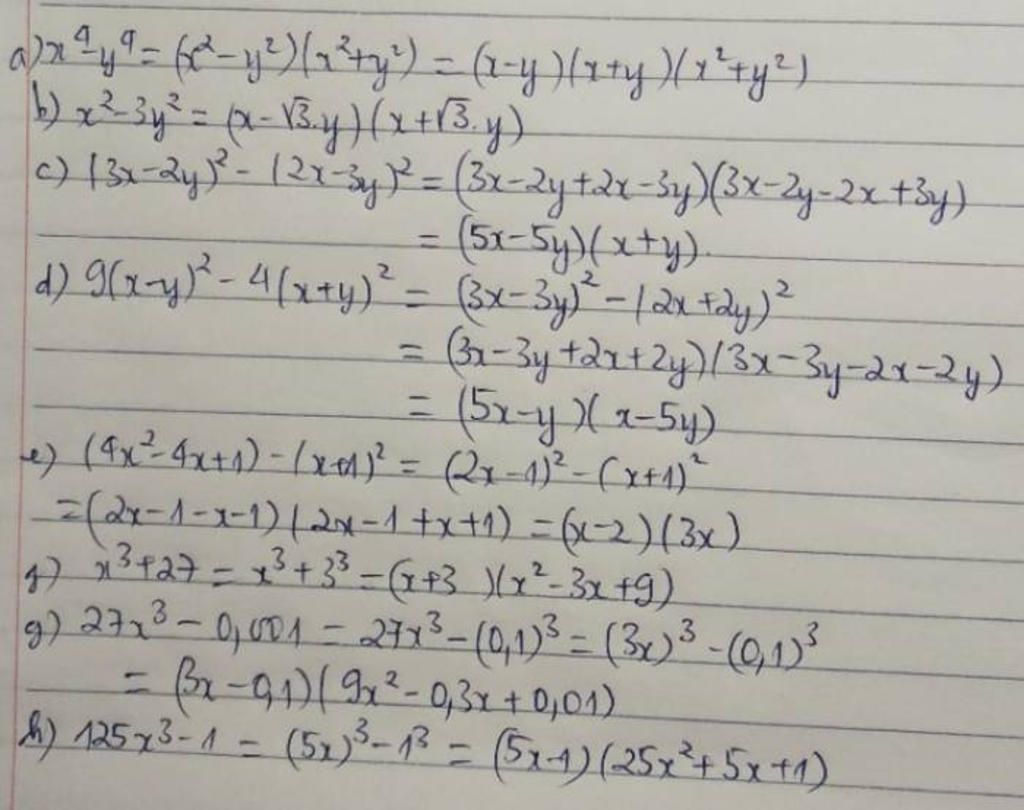 a) x⁴-y⁴ = (x²-y²)(x²+y²) = (x-y)(x+y)(x²+y²)
b) x²-3y² = (x-√3.y)(x+√3.y)
c) (3x-2y)² - (2x-3y)² = (3x-2y+2x-3y)(3x-2y-2x+3y)
= (5x-5y)(x+y).
d) 9(x-y)² - 4(x+y)² = (3x-3y)² - (2x+2y)²
= (3x-3y+2x+2y)(3x-3y-2x-2y)
= (5x-y)(x-5y)
e) (4x²-4x+1) - (x+1)² = (2x-1)² - (x+1)²
= (2x-1-x-1)(2x-1+x+1) = (x-2)(3x)
f) x³+27 = x³+3³ = (x+3)(x²-3x+9)
g) 27x³ - 0,001 = 27x³ - (0,1)³ = (3x)³ - (0,1)³
= (3x-0,1)(9x²-0,3x+0,01)
h) 125x³-1 = (5x)³-1³ = (5x-1)(25x²+5x+1)